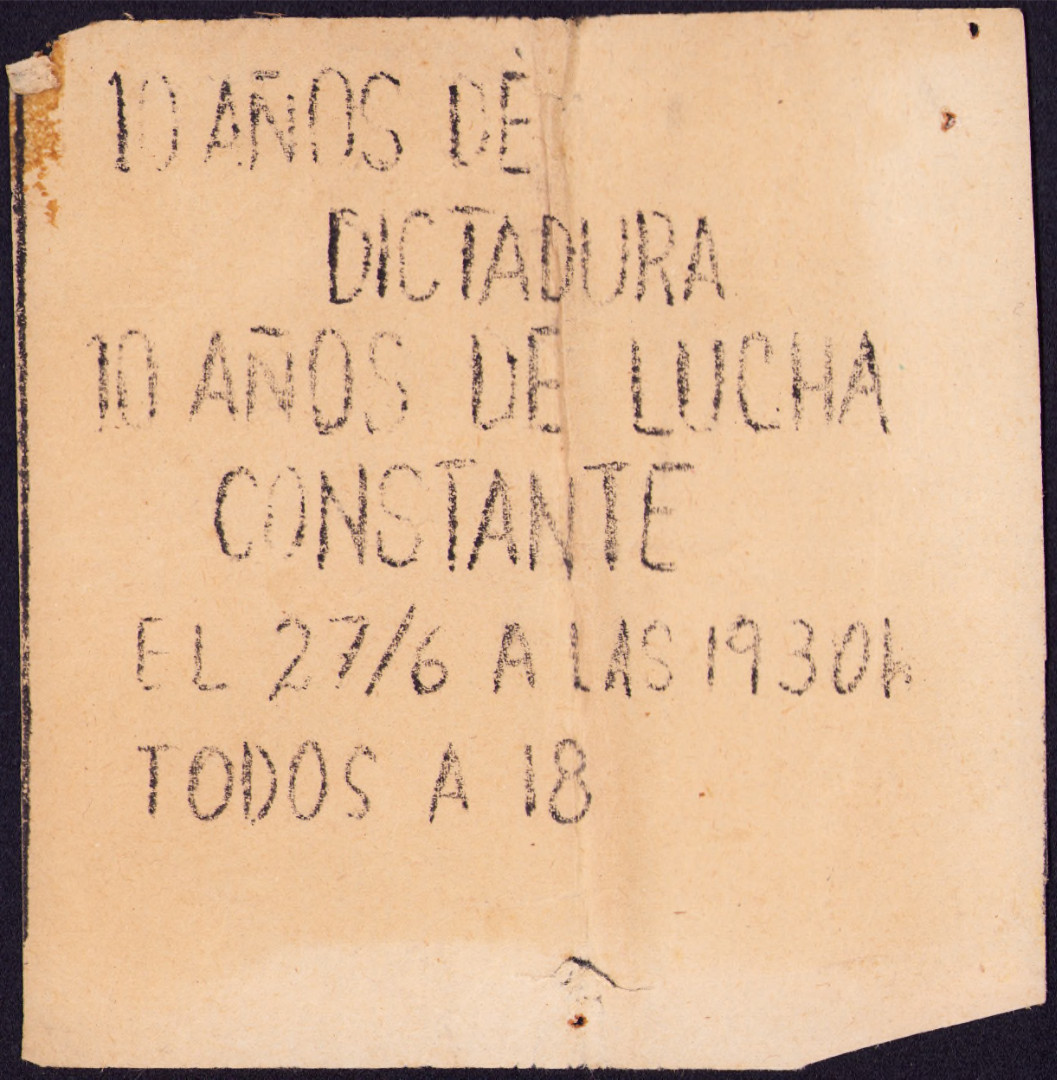 10 AÑOS DE
DICTADURA
10 AÑOS DE LUCHA
CONSTANTE
EL 27/6 A LAS 1930h
TODOS A 18